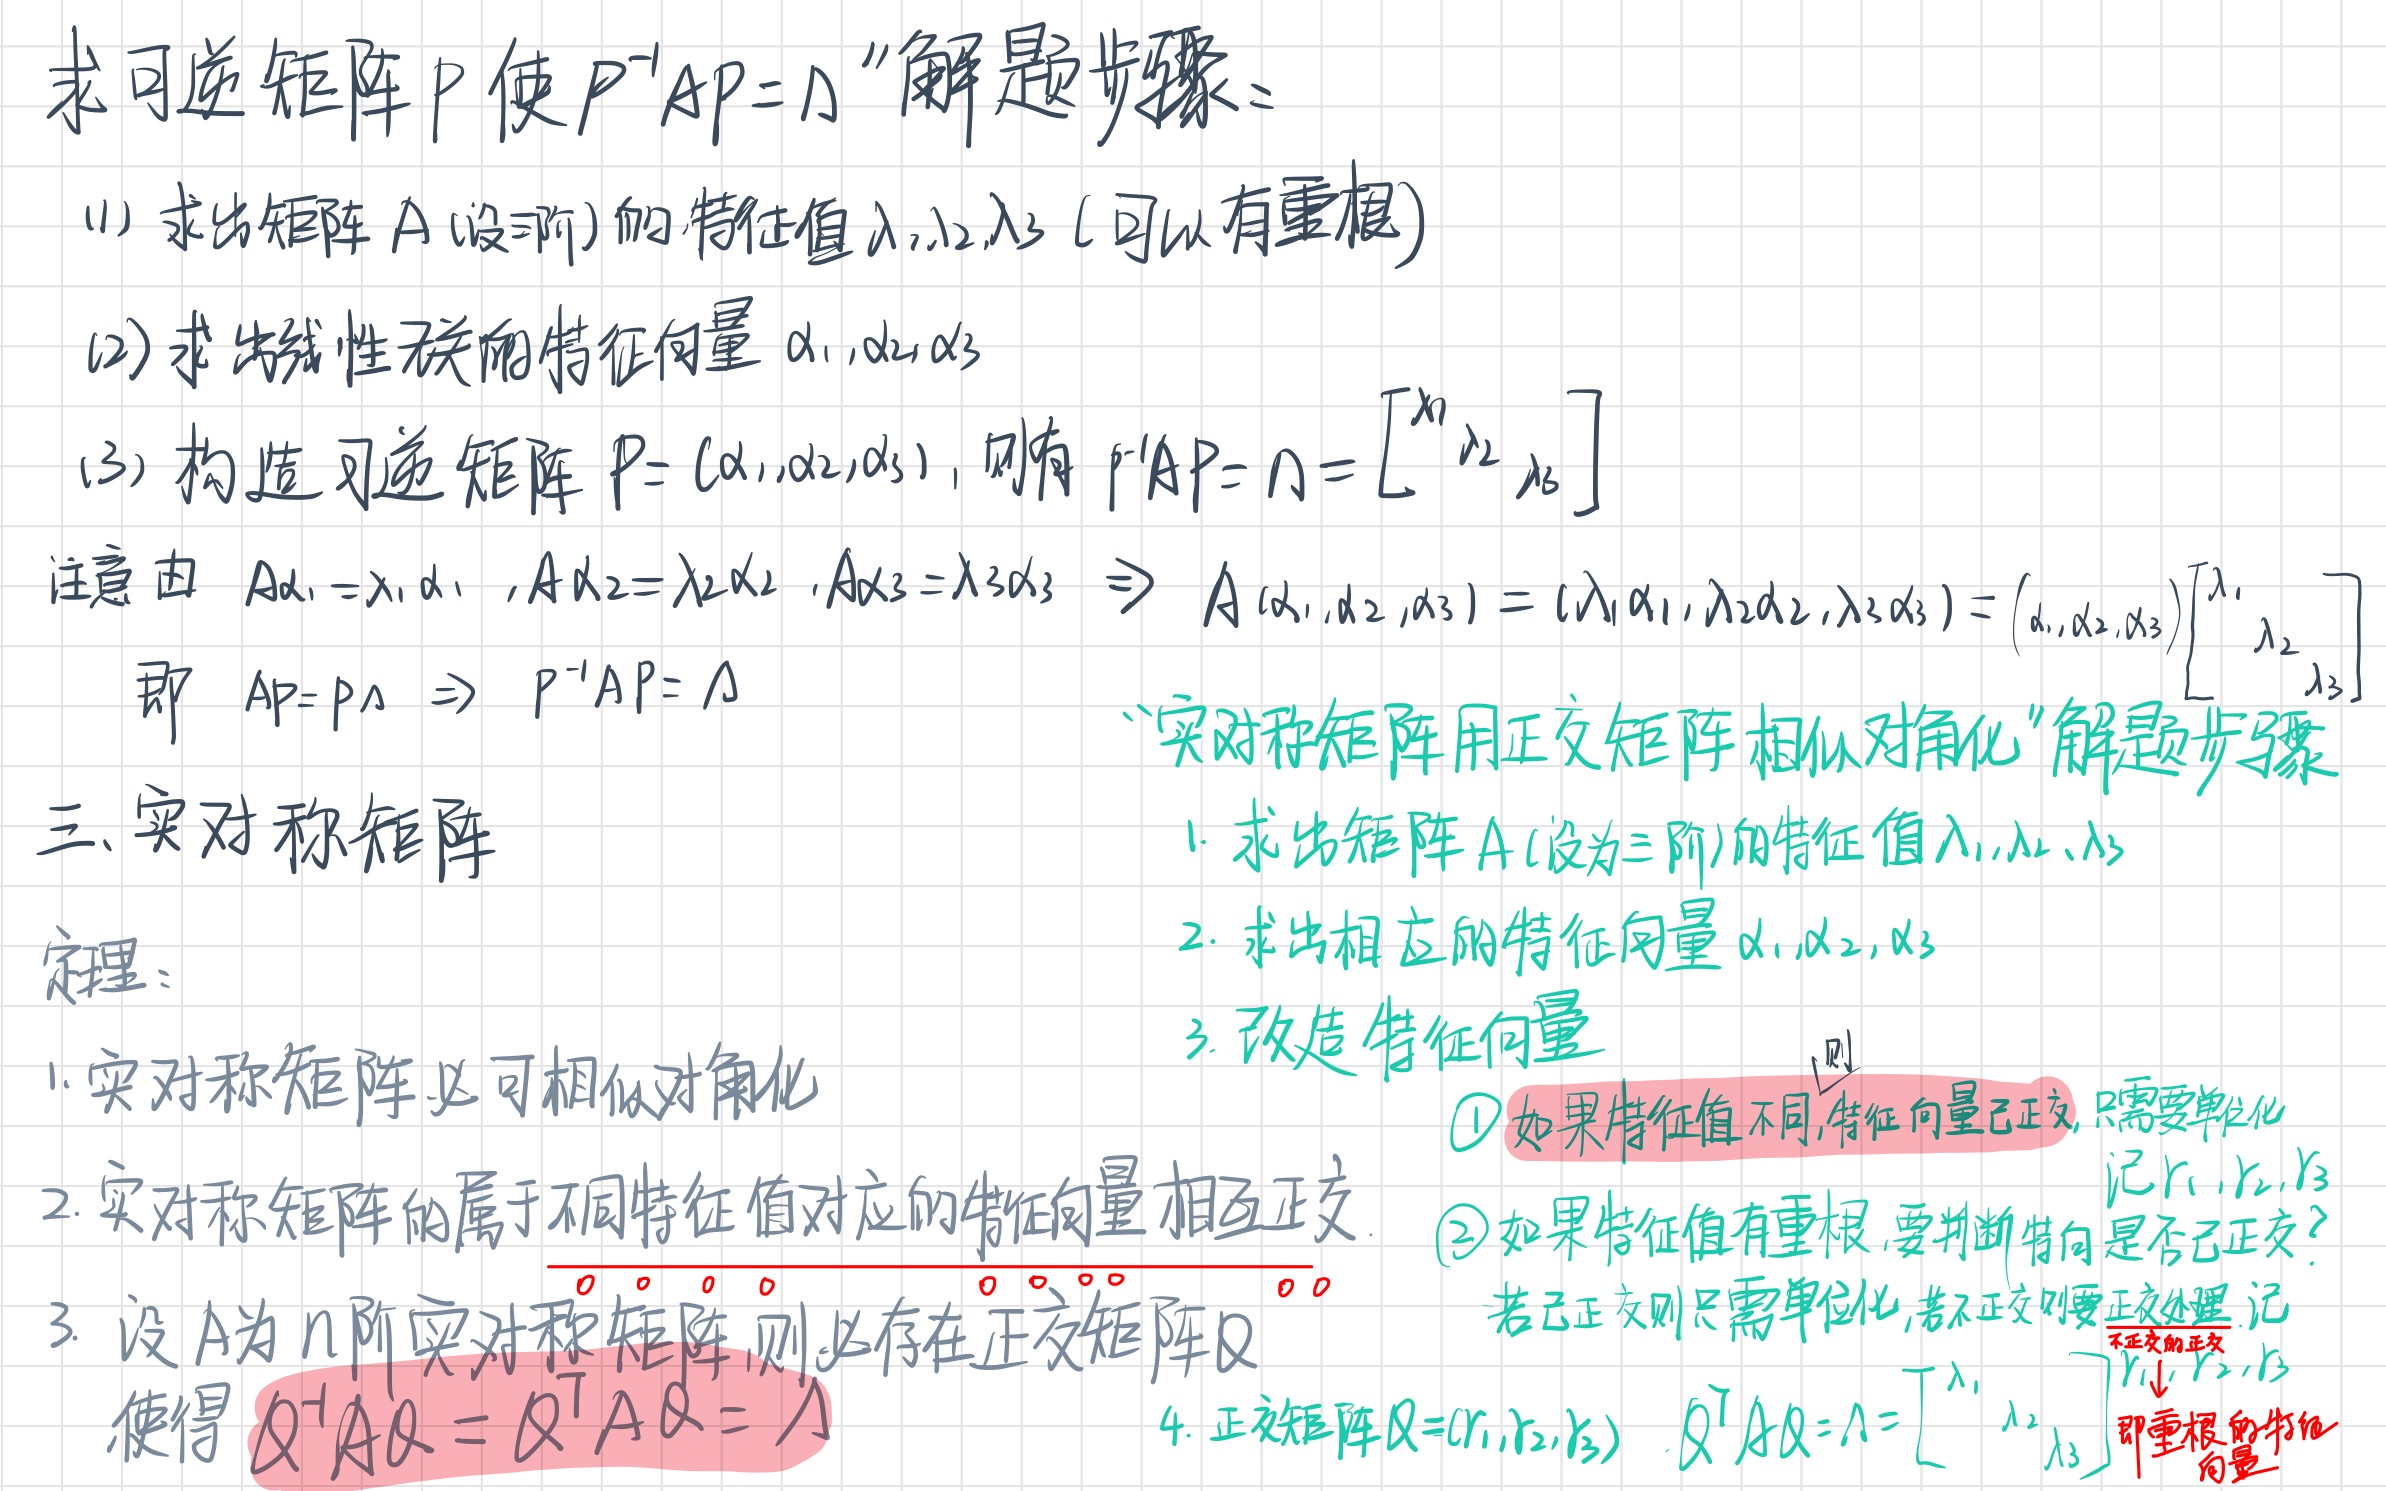 求可逆矩阵P使P⁻¹AP=Λ"解题步骤:
(1) 求出矩阵A(设三阶)的特征值λ₁,λ₂,λ₃(可以有重根)
(2) 求出线性无关的特征向量α₁,α₂,α₃
(3) 构造可逆矩阵P=(α₁,α₂,α₃),则有P⁻¹AP=Λ=[λ₁ λ₂ λ₃]
注意由 Aα₁=λ₁α₁,Aα₂=λ₂α₂,Aα₃=λ₃α₃ ⇒ A(α₁,α₂,α₃)=(λ₁α₁,λ₂α₂,λ₃α₃)=(α₁,α₂,α₃)[λ₁ λ₂ λ₃]
即 AP=PΛ ⇒ P⁻¹AP=Λ
三、实对称矩阵
定理:
1.实对称矩阵必可相似对角化
2.实对称矩阵的属于不同特征值对应的特征向量相互正交.
3.设A为n阶实对称矩阵,则必存在正交矩阵Q
使得 Q⁻¹AQ=QᵀAQ=Λ
"实对称矩阵用正交矩阵相似对角化"解题步骤
1.求出矩阵A(设为三阶)的特征值λ₁,λ₂,λ₃
2.求出相应的特征向量α₁,α₂,α₃
3.改造特征向量
则
①如果特征值不同,特征向量已正交,只需要单位化
记γ₁,γ₂,γ₃
②如果特征值有重根,要判断特向是否已正交?
若已正交则只需单位化,若不正交则要正交处理.记
不正交的正交
γ₁,γ₂,γ₃
4.正交矩阵Q=(γ₁,γ₂,γ₃) QᵀAQ=Λ=[λ₁ λ₂ λ₃]
↓
即重根的特征
向量